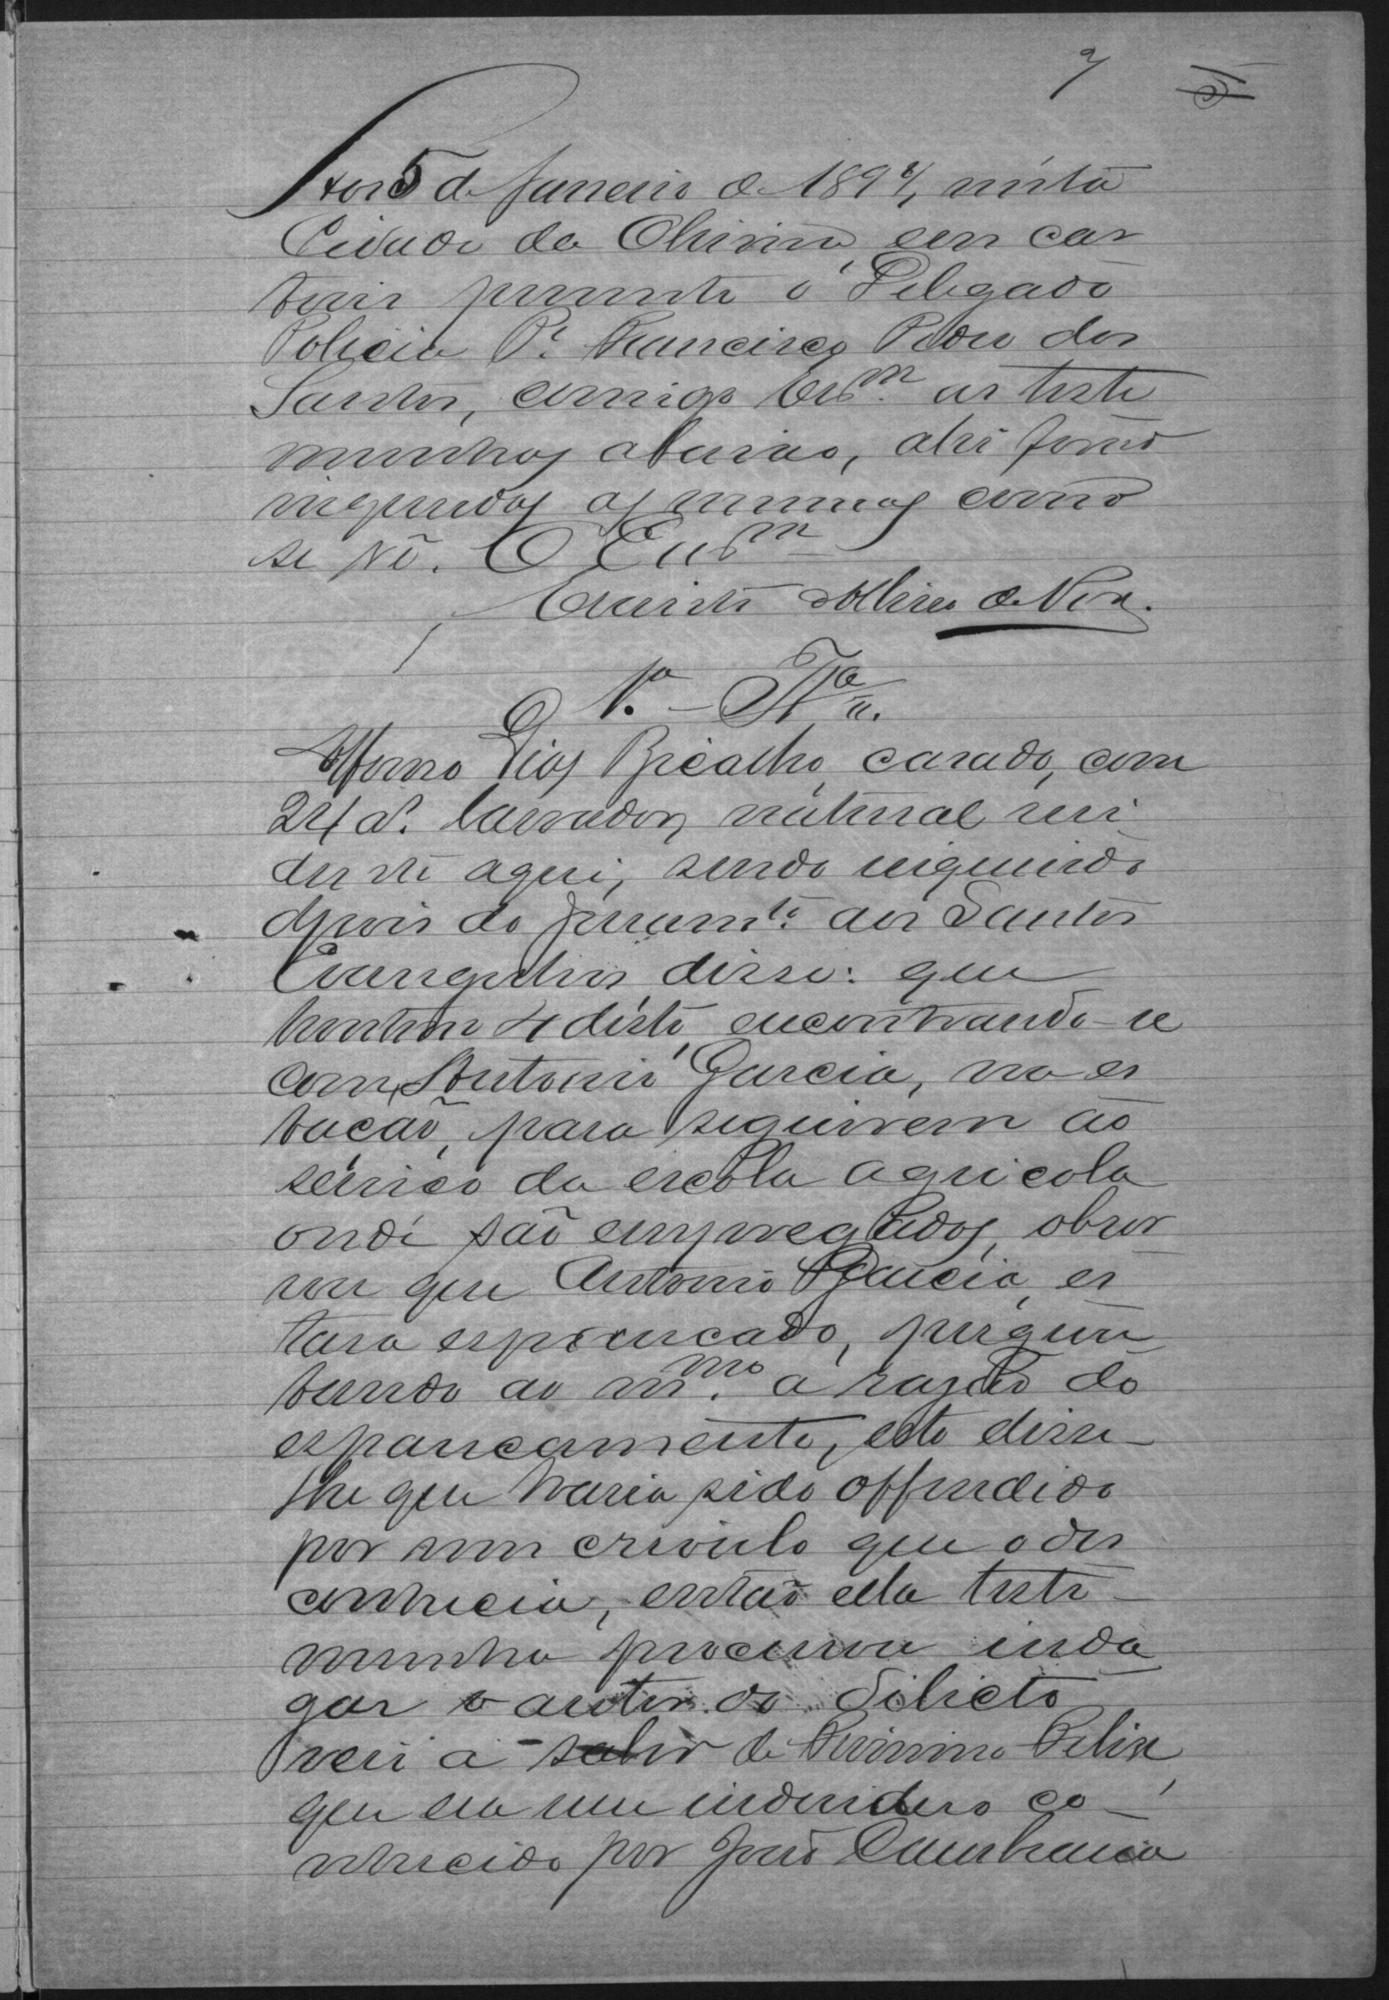 7 5
Aos 5 de Janeiro de 1894, nesta
Cidade da Oliveira, em car
torio presente o Delegado
Policia P.e Francisco Pedro dos
Santos, comigo Escm. as teste
munhas abaixo, ahi forão
inqueridas as mesmas como
se vê. O Escm
de
1.a - Ta.
Affonso Dias Bicalho, casado, com
24 a.s lavrador, natural resi
dente aqui, sendo inquirido
depois do juramto. aos Santos
Evangelhos disse: que
hontem 4 deste, encontrando-se
com Antonio Garcia, na es
tação, para seguirem ao
serviço da escola agricola
onde são empregados, obser
vou que Antonio Garcia, es
tava espancado, pergun
tando ao mmo. a razão do
espancamento, este disse-
lhe que havia sido offendido
por um crioulo que o des
conhecia, então ella teste-
munha procurou inda
gar o autor do delicto
veii a saber de Firmino Felix,
que era um individuo co-
nhecido por João